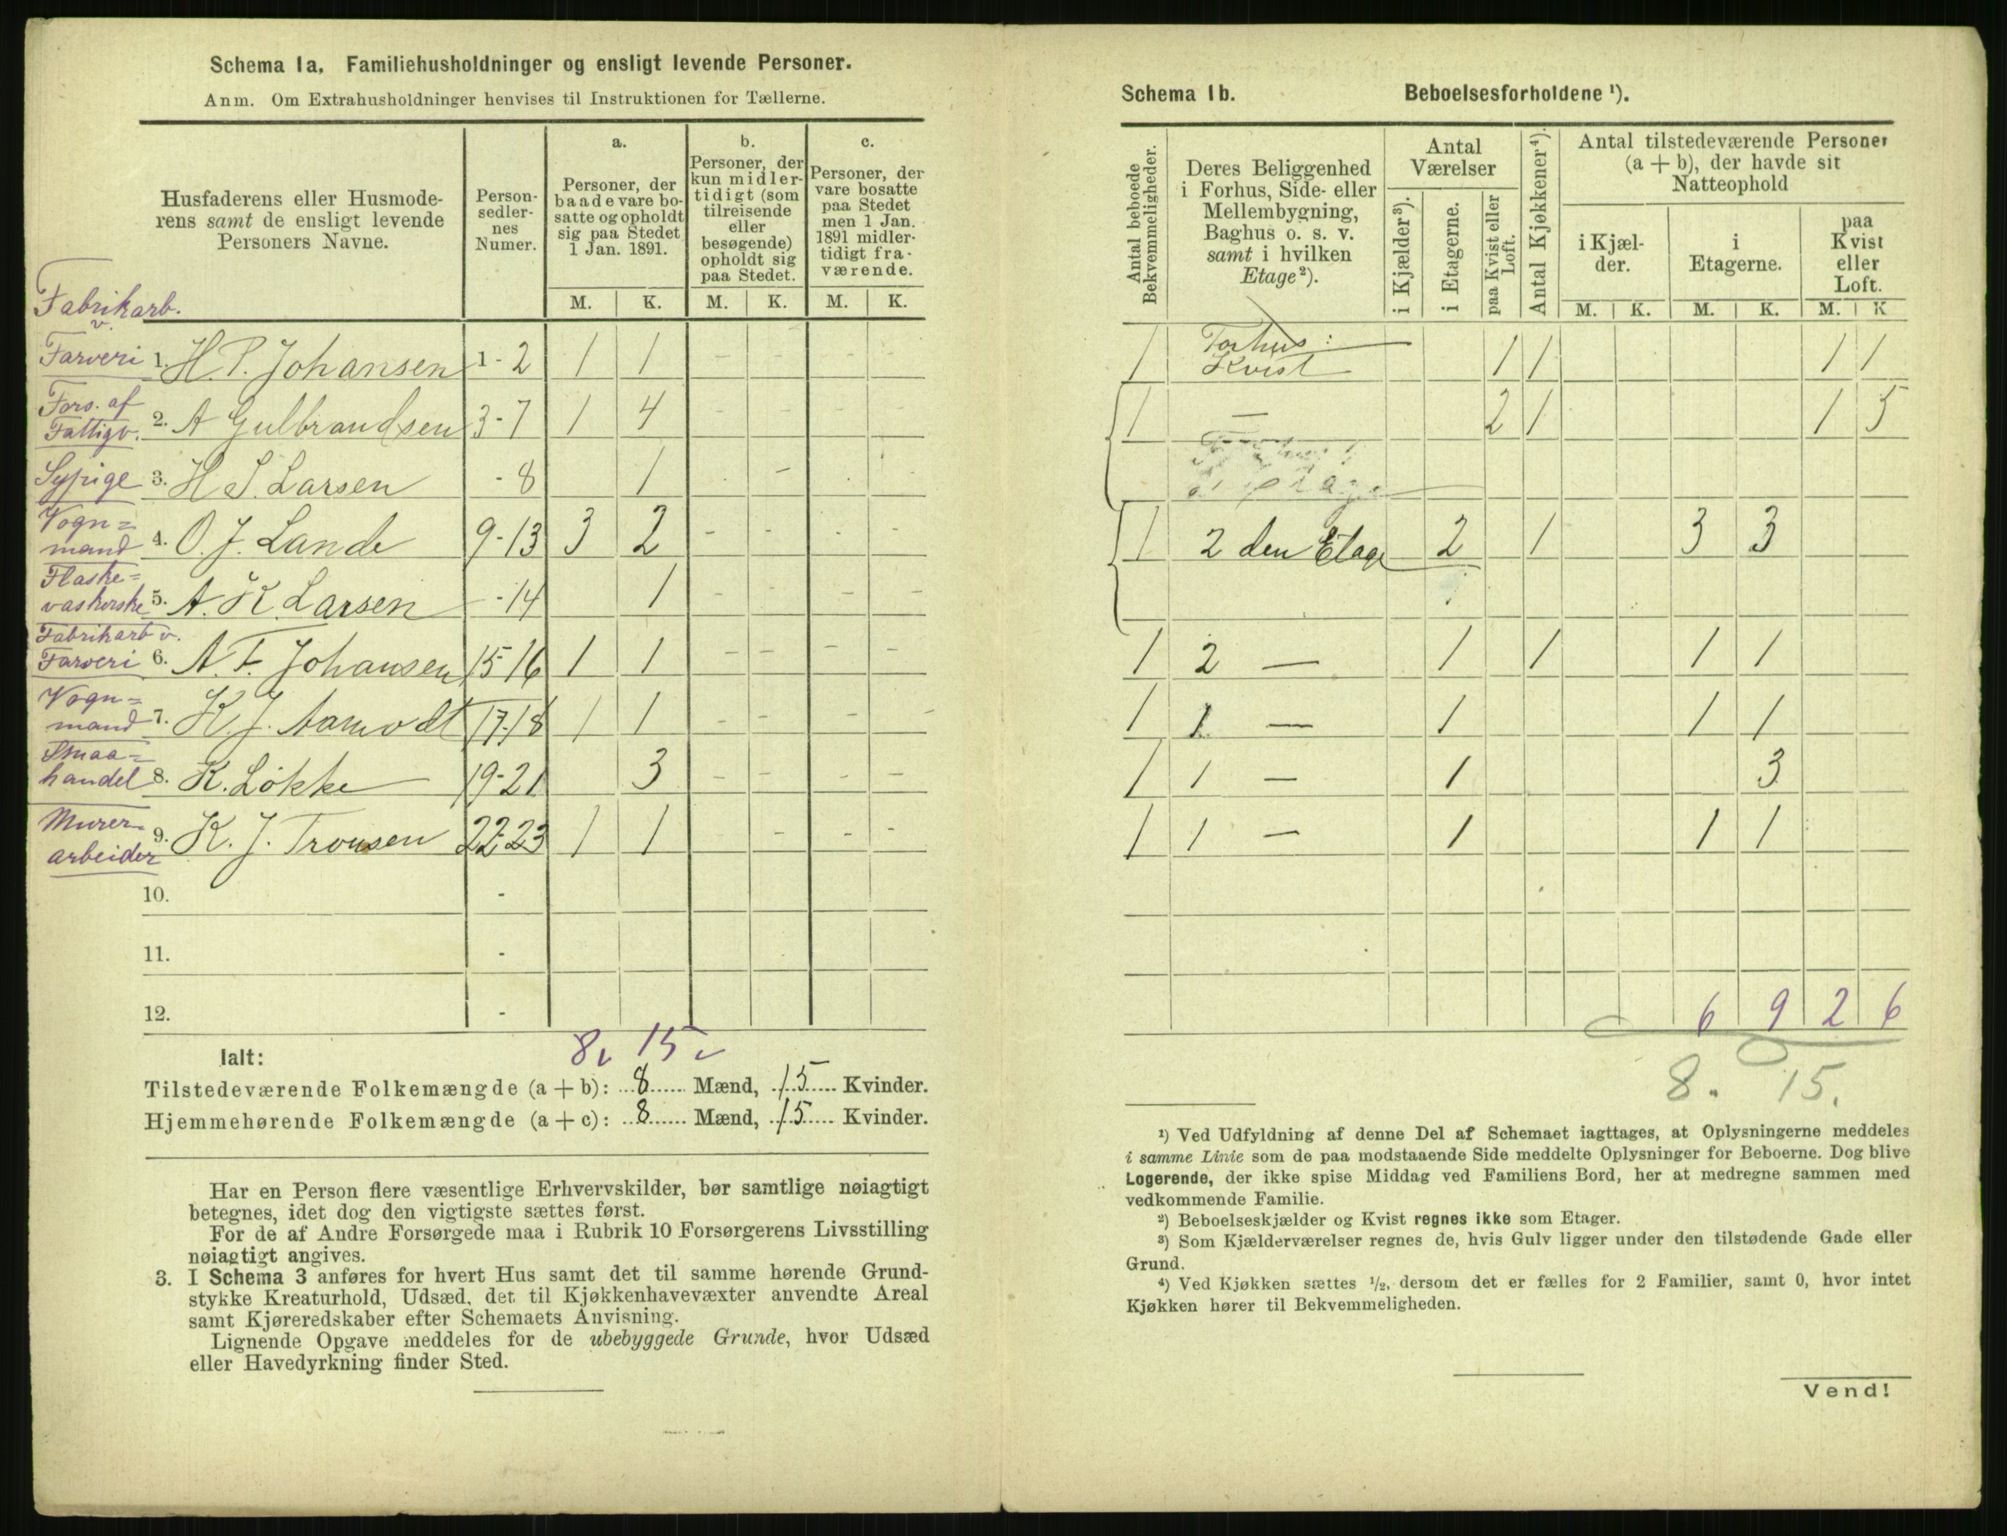 Schema 1a. Familiehusholdninger og ensligt levende Personer.
Anm. Om Extrahusholdninger henvises til Instruktionen for Tællerne.
Husfaderens eller Husmode-
rens samt de ensligt levende
Personers Navne.
Person-
sedler-
nes
Numer.
a.
Personer, der
baade vare bo-
satte og opholdt
sig paa Stedet
1 Jan. 1891.
b.
Personer, der
kun midler-
tidigt (som
tilreisende
eller
besøgende)
opholdt sig
paa Stedet.
c.
Personer, der
vare bosatte
paa Stedet
men 1 Jan.
1891 midler-
tidigt fra-
værende.
M. K. M. K. M. K.
Fabrikarb.
v.
Farveri 1. H. P. Johansen 1-2 1 1 – – – –
Fors. af
Fattigv. 2. A Gulbrandsen 3-7 1 4 – – – –
Sypige 3. H S. Larsen -8 1 –
Vogn=
mand 4. O. J. Lande 9-13 3 2 – – – –
Flaske=
vaskerske 5. A. K Larsen -14 1 – – – –
Fabrikarb v.
Farveri 6. A. F. Johansen 15-16 1 1 – – – –
Vogn=
mand 7. K. J. Aamodt 17-18 1 1 – – – –
Smaa=
handel 8. K. Løkke 19-21 3 – – – –
Murer-
arbeider 9. K. J. Tronsen 22-23 1 1 – – – –
10. -
11. -
12. -
8 15
Ialt:
Tilstedeværende Folkemængde (a + b): 8 Mænd, 15 Kvinder.
Hjemmehørende Folkemængde (a + c): 8 Mænd, 15 Kvinder.
Har en Person flere væsentlige Erhvervskilder, bør samtlige nøiagtigt
betegnes, idet dog den vigtigste sættes først.
For de af Andre Forsørgede maa i Rubrik 10 Forsørgerens Livsstilling
nøiagtigt angives.
3. I Schema 3 anføres for hvert Hus samt det til samme hørende Grund-
stykke Kreaturhold, Udsæd, det til Kjøkkenhavevæxter anvendte Areal
samt Kjøreredskaber efter Schemaets Anvisning.
Lignende Opgave meddeles for de ubebyggede Grunde, hvor Udsæd
eller Havedyrkning finder Sted.
Schema 1b. Beboelsesforholdene ¹).
Antal beboede
Bekvemmeligheder.
Deres Beliggenhed
i Forhus, Side- eller
Mellembygning,
Baghus o. s. v.
samt i hvilken
Etage²).
Antal
Værelser
i Kjælder³).
i Etagerne.
paa Kvist eller
Loft.
Antal Kjøkkener⁴).
Antal tilstedeværende Personer
(a + b), der havde sit
Natteophold
i Kjæl-
der.
i
Etagerne.
paa
Kvist
eller
Loft.
M. K. M. K. M. K
Forhus:
1 Kvist 1 1 1 1
1 — 2 1 1 5
1 2 den Etage 2 1 3 3
1 2 — 1 1 1 1
1 1 — 1 1 1
1 1 — 1 3
1 1 — 1 1 1
6 9 2 6
8. 15.
¹) Ved Udfyldning af denne Del af Schemaet iagttages, at Oplysningerne meddeles
i samme Linie som de paa modstaaende Side meddelte Oplysninger for Beboerne. Dog blive
Logerende, der ikke spise Middag ved Familiens Bord, her at medregne sammen med
vedkommende Familie.
²) Beboelseskjælder og Kvist regnes ikke som Etager.
³) Som Kjælderværelser regnes de, hvis Gulv ligger under den tilstødende Gade eller
Grund.
⁴) Ved Kjøkken sættes ½, dersom det er fælles for 2 Familier, samt 0, hvor intet
Kjøkken hører til Bekvemmeligheden.
Vend!